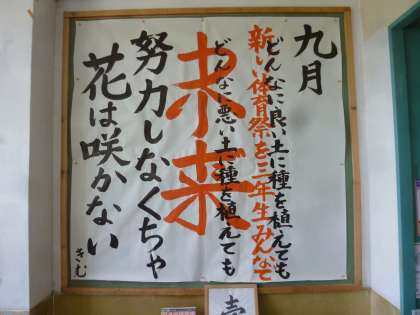 九月
どんなに良い土に種を植えても
新しい体育祭を三年生みんなで
どんなに悪い土に種を植えても
未来
努力しなくちゃ
花は咲かない
きむ
壱